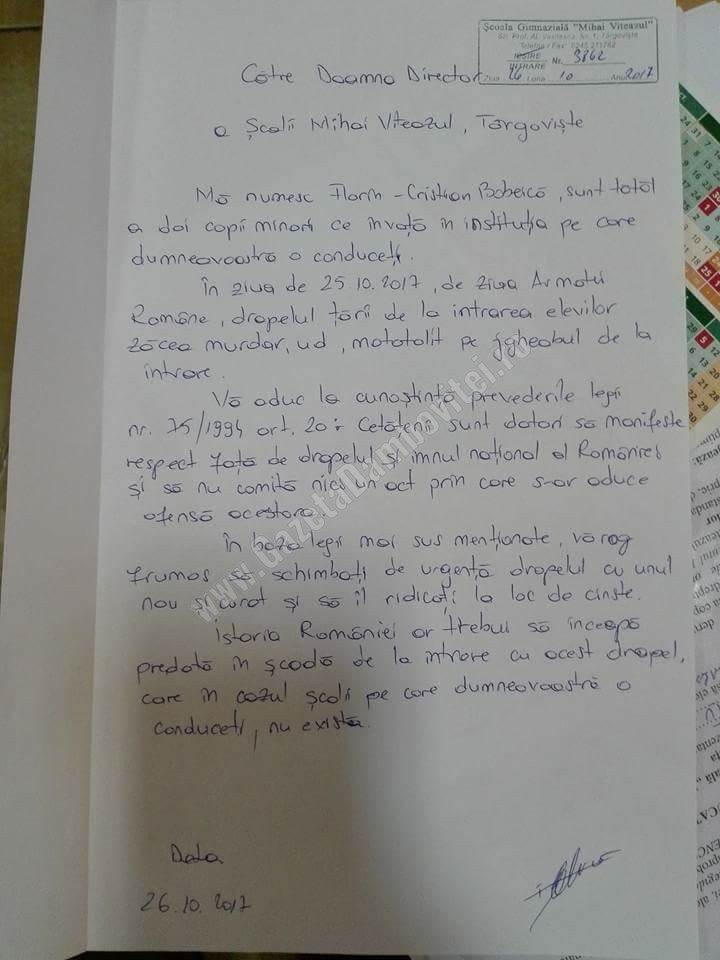 Școala Gimnazială "Mihai Viteazul"
Str. Prof. Al. Vasilescu, Nr. 1, Târgoviște
Telefon / Fax 0245 211762
IEȘIRE
INTRARE Nr. 3862
Ziua 26 Luna 10 Anul 2017
Către Doamna Director
a Școlii Mihai Viteazul, Târgoviște
Mă numesc Florin-Cristian Bobeică, sunt tatăl
a doi copii minori ce învață în instituția pe care
dumneavoastră o conduceți.
În ziua de 25.10.2017, de ziua Armatei
Române, drapelul țării de la intrarea elevilor
zăcea murdar, ud, mototolit pe jgheabul de la
intrare.
Vă aduc la cunoștință prevederile legii
nr. 75/1994 art. 20: Cetățenii sunt datori să manifeste
respect față de drapelul și imnul național al României
și să nu comită nici un act prin care s-ar aduce
ofensă acestora.
În baza legii mai sus menționate, vă rog
frumos să schimbați de urgență drapelul cu unul
nou și curat și să îl ridicați la loc de cinste.
Istoria României ar trebui să înceapă
predată în școală de la intrare cu acest drapel,
care în cazul școlii pe care dumneavoastră o
conduceți, nu există.
Data
26.10.2017
www.GazetaDambovitei.ro